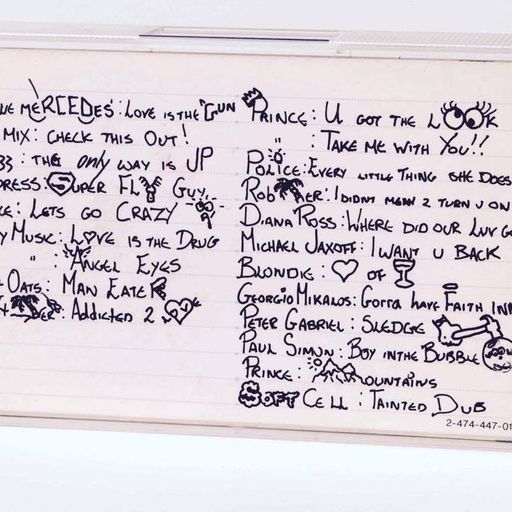 UE MERCEDES: LOVE IS THE GUN
MIX: CHECK THIS OUT!
33: THE ONLY WAY IS UP
DRESS: SUPER FLY GUY
CE: LETS GO CRAZY
Y MUSIC: LOVE IS THE DRUG
": ANGEL EYES
+ OATS: MAN EATER
DER: ADDICTED 2 LOVE
PRINCE: U GOT THE LOOK
": TAKE ME WITH YOU!!
POLICE: EVERY LITTLE THING SHE DOES
ROB MER: I DIDNT MEAN 2 TURN U ON
DIANA ROSS: WHERE DID OUR LUV GO
MICHAEL JAXOFF: I WANT U BACK
BLONDIE: OF
GEORGIO MIKALOS: GOTTA HAVE FAITH INN
PETER GABRIEL: SLEDGE
PAUL SIMON: BOY IN THE BUBBLE
PRINCE: MOUNTAINS
SOFT CELL: TAINTED DUB
2-474-447-01